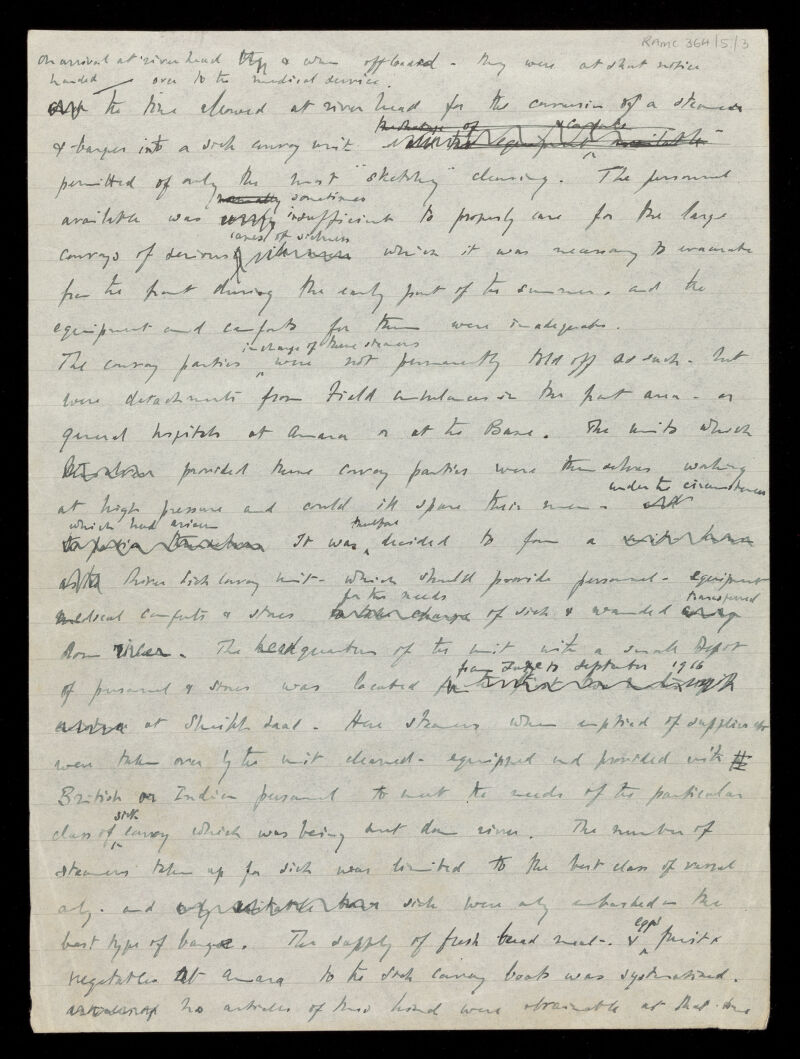 RAMC 364/5/3
On arrival at river head they & when offloaded - they were at short notice
handed over to the medical service.
the time allowed at river head for the conversion of a steamer
& barges into a sick convoy unit
permitted of only the most "sketchy" cleansing. The personnel
normally sometimes
available was insufficient to properly care for the large
cases of sickness
convoys of serious which it was necessary to evacuate
from the front during the early part of the summer. and the
equipment and comforts for them were inadequate.
in charge of these steamers
The convoy parties were not permanently told off as such - but
were detachments from Field ambulances in the front area - or
general hospitals at Amara or at the Base. The units which
provided these convoy parties were themselves working
under the circumstances
at high pressure and could ill spare their men.
which had arisen therefore
It was decided to form a
River Sick Convoy Unit - which should provide personnel - equipment
for the needs transferred
medical comforts & stores of sick & wounded
down river. The headquarters of the unit with a small Depot
from June to September 1916
of personnel & stores was located
at Sheikh Saad. Here steamers when emptied of supplies etc
were taken over by the unit cleaned - equipped and provided with
British or Indian personnel to meet the needs of the particular
sick
class of convoy which was being sent down river. The number of
steamers taken up for sick was limited to the best class of vessel
only. and sick were only embarked in the
eggs
best type of barge. The supply of fresh bread meat - & fruit &
vegetables at Amara to the sick convoy boats was systematised.
no articles of this kind were obtainable at that time